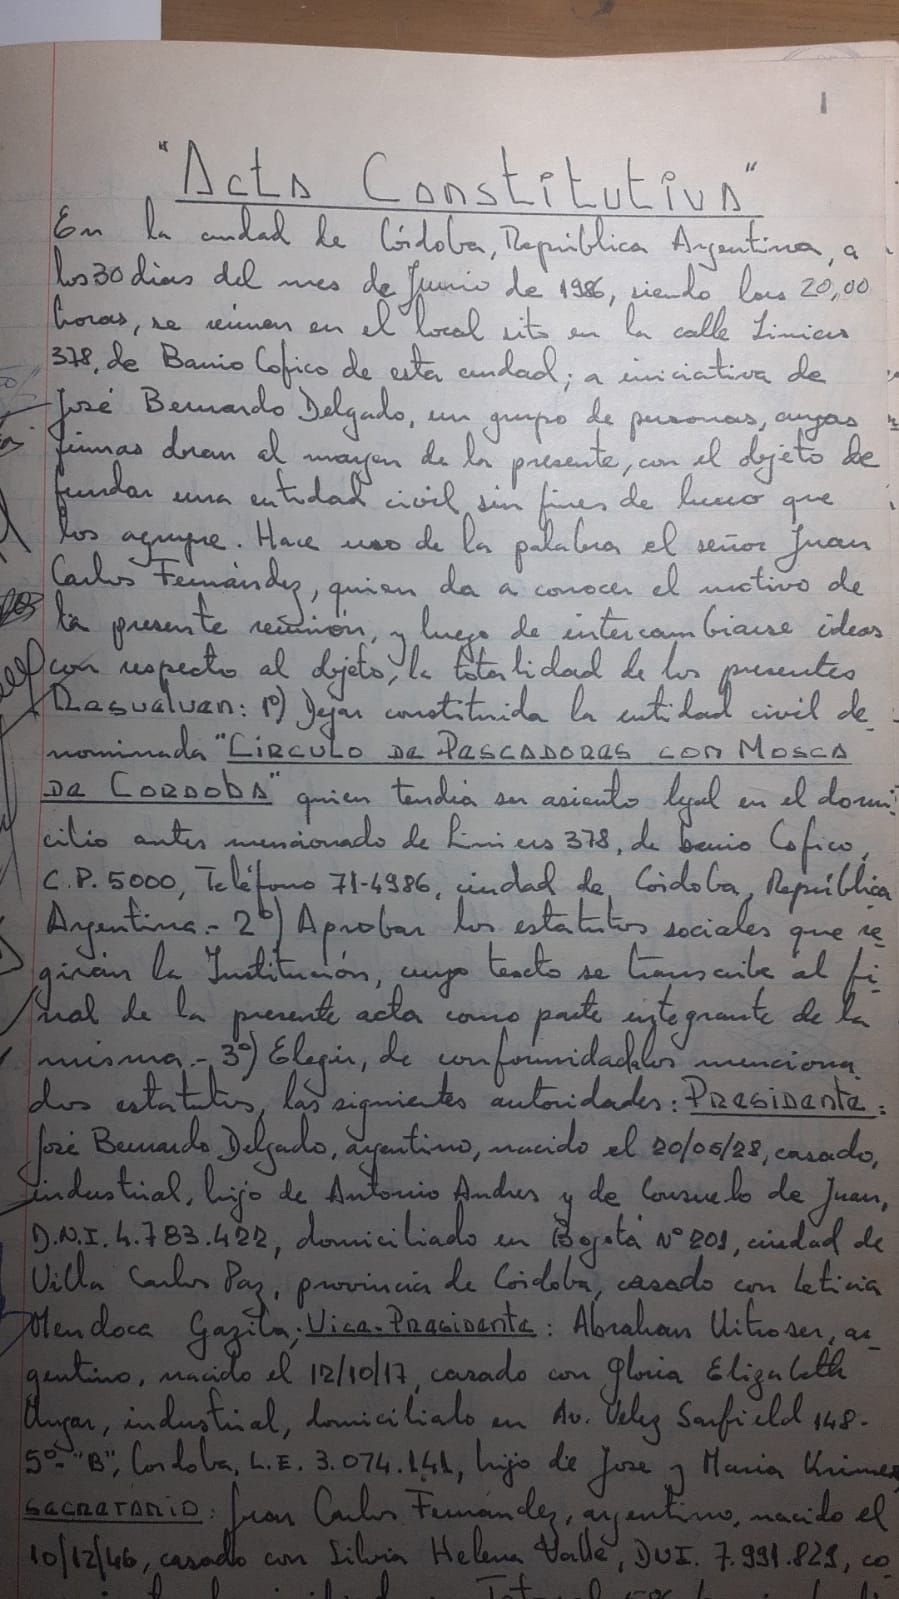 1
"Acta Constitutiva"
En la ciudad de Córdoba, República Argentina, a
los 30 dias del mes de Junio de 1986, siendo las 20,00
horas, se reunen en el local sito en la calle Liniers
378, de Barrio Cofico de esta ciudad; a iniciativa de
José Bernardo Delgado, un grupo de personas, cuyas
firmas obran al margen de la presente, con el objeto de
fundar una entidad civil sin fines de lucro que
los agrupe. Hace uso de la palabra el señor Juan
Carlos Fernández, quien da a conocer el motivo de
la presente reunión, y luego de intercambiarse ideas
con respecto al objeto, la totalidad de los presentes
Resuelven: 1º) Dejar constituida la entidad civil de-
nominada "CÍRCULO DE PESCADORES CON MOSCA
DE CORDOBA" quien tendrá su asiento legal en el domi-
cilio antes mencionado de Liniers 378, de barrio Cofico,
C.P. 5000, Teléfono 71-4986, ciudad de Córdoba, República
Argentina.- 2º) Aprobar los estatutos sociales que re-
girán la Institución, cuyo texto se transcribe al fi-
nal de la presente acta como parte integrante de la
misma.- 3º) Elegir, de conformidad a los menciona
dos estatutos, las siguientes autoridades: Presidente:
José Bernardo Delgado, argentino, nacido el 20/05/28, casado,
industrial, hijo de Antonio Andres y de Consuelo de Juan,
D.N.I. 4.783.422, domiciliado en Bogotá Nº 201, ciudad de
Villa Carlos Paz, provincia de Córdoba, casado con Leticia
Mendoca Gazita; Vice-Presidente: Abraham Uitroser, ar-
gentino, nacido el 12/10/17, casado con Gloria Elizabeth
Ungar, industrial, domiciliado en Av. Velez Sarfield 148-
5º-"B", Cordoba, L.E. 3.074.141, hijo de Jose y Maria
SECRETARIO: Juan Carlos Fernández, argentino, nacido el
10/12/46, casado con Silvia Helena Valle, DUI. 7.991.829, co